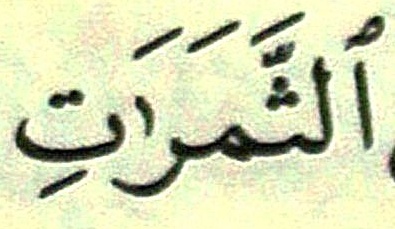 ٱلثَّمَرَٰتِ